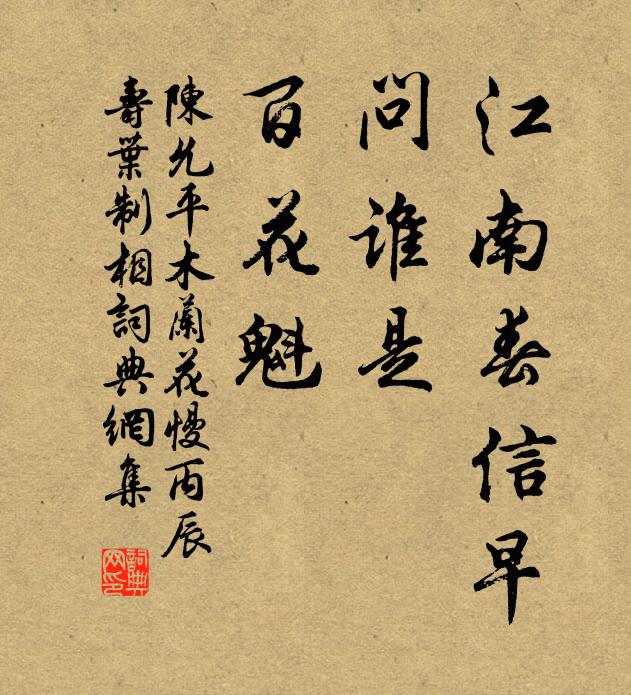 江南春信早
問誰是
百花魁
陳允平木蘭花慢丙辰
壽葉制相詞典網集
詞典网印